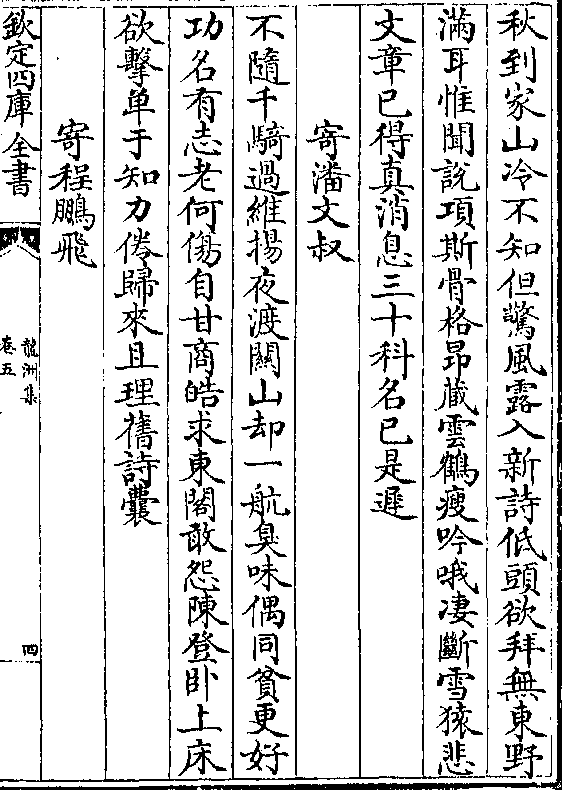 秋到家山冷不知但驚風露入新詩低頭欲拜無東野
滿耳惟聞說項斯骨格昂藏雲鶴瘦吟哦凄斷雪猿悲
文章已得真消息三十科名已是遲
寄潘文叔
不隨千騎過維揚夜渡關山却一航臭味偶同貧更好
功名有志老何傷自甘商皓求東閣敢怨陳登卧上床
欲擊单于知力倦歸來且理舊詩囊
寄程鵬飛
欽定四庫全書
龍洲集
卷五
四